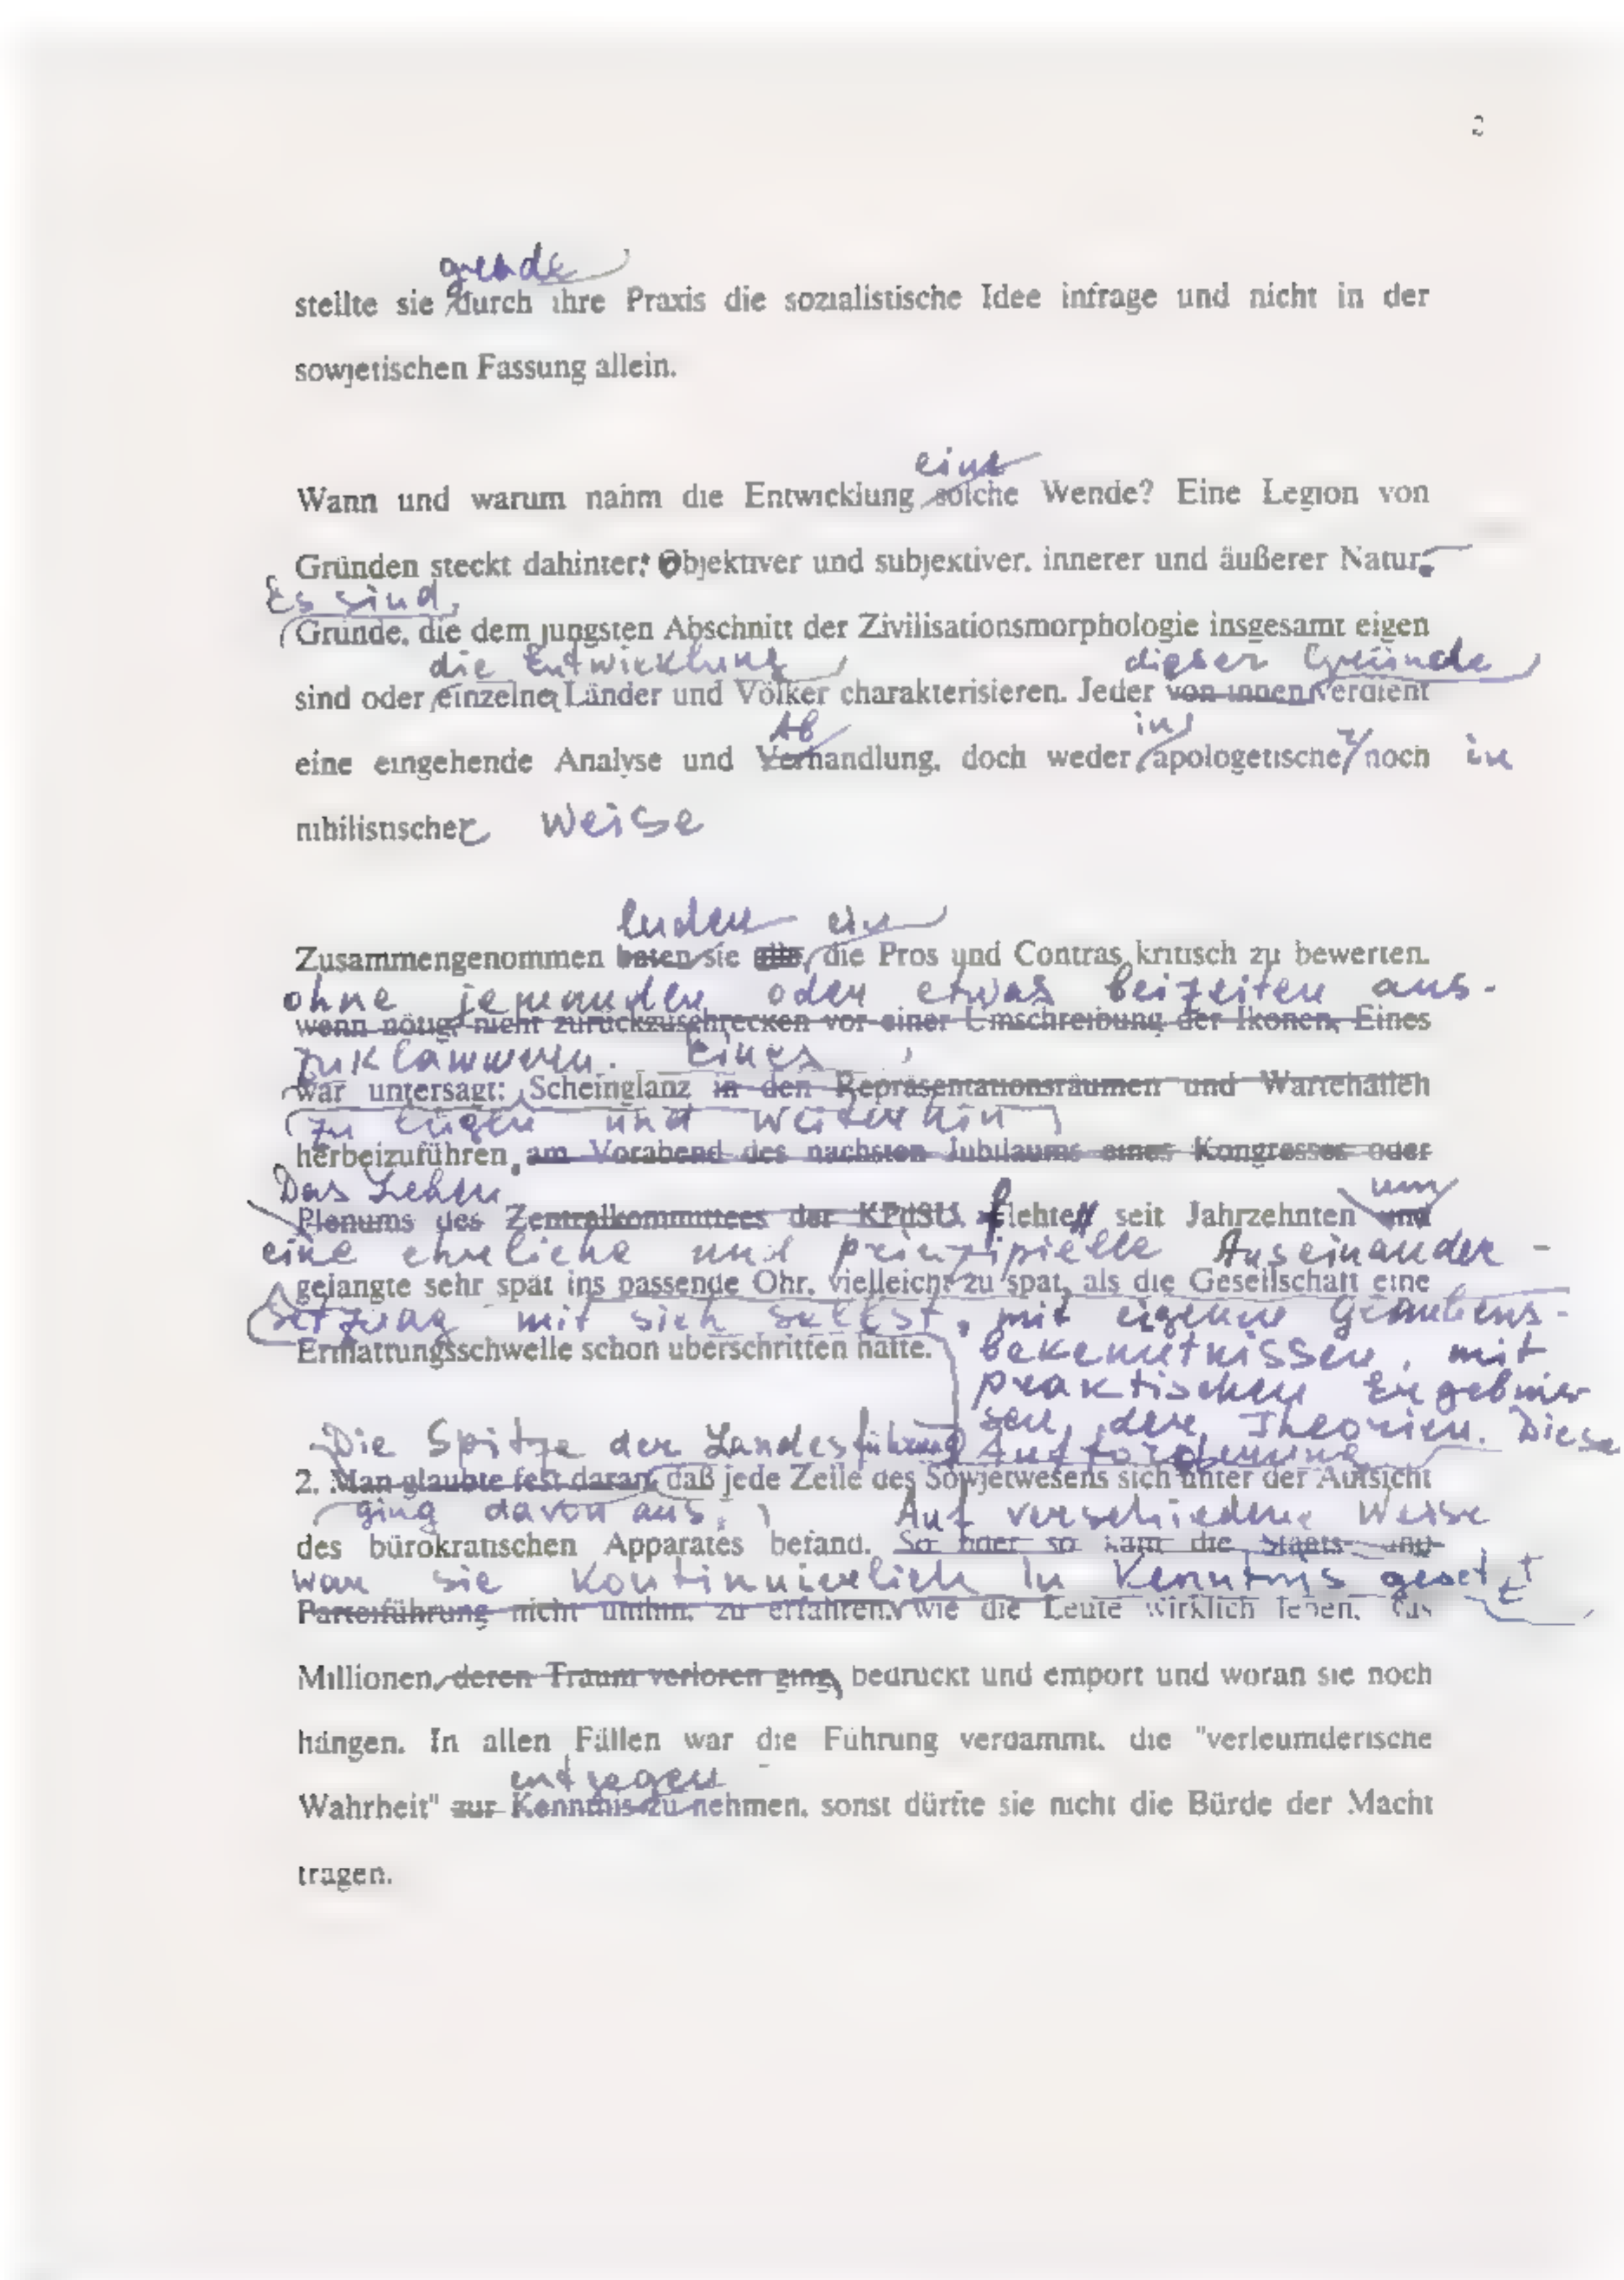 2
gerade
stellte sie durch ihre Praxis die sozialistische Idee infrage und nicht in der
sowjetischen Fassung allein.
eine
Wann und warum nahm die Entwicklung solche Wende? Eine Legion von
Gründen steckt dahinter: Objektiver und subjektiver, innerer und äußerer Natur.
Es sind
Gründe, die dem jüngsten Abschnitt der Zivilisationsmorphologie insgesamt eigen
die Entwicklung dieser Gründe
sind oder einzelner Länder und Völker charakterisieren. Jeder von ihnen verdient
Ab in r
eine eingehende Analyse und Verhandlung, doch weder apologetische noch in
nihilistischer Weise
luden ein
Zusammengenommen baten sie alle, die Pros und Contras kritisch zu bewerten,
ohne jemanden oder etwas beizeiten aus-
wenn nötig, nicht zurückzuschrecken vor einer Umschreibung der Ikonen. Eines
zuklammern. Eines
war untersagt: Scheinglanz in den Repräsentationsräumen und Wartehallen
zu lügen und weiterhin
herbeizuführen, am Vorabend des nächsten Jubiläums eines Kongresses oder
Das Leben um
Plenums des Zentralkommittees der KPdSU. flehte seit Jahrzehnten und
eine ehrliche und prinzipielle Auseinander-
gelangte sehr spät ins passende Ohr, vielleicht zu spät, als die Gesellschaft eine
setzung mit sich selbst, mit eigenen Glaubens-
Ermattungsschwelle schon überschritten hatte. bekenntnissen, mit
praktischen Ergebnis
sen der Theorien. Diese
Die Spitze der Landesführung Aufforderung
2. Man glaubte fest daran, daß jede Zeile des Sowjetwesens sich unter der Aufsicht
ging davon aus, Auf verschiedene Weise
des bürokratischen Apparates befand. So oder so kam die Staats- und
war sie kontinuierlich in Kenntnis gesetzt
Parteiführung nicht umhin, zu erfahren, wie die Leute wirklich leben, was
Millionen, deren Traum verloren ging, bedrückt und empört und woran sie noch
hängen. In allen Fällen war die Führung verdammt, die "verleumderische
entgegen
Wahrheit" zur Kenntnis zu nehmen, sonst dürfte sie nicht die Bürde der Macht
tragen.